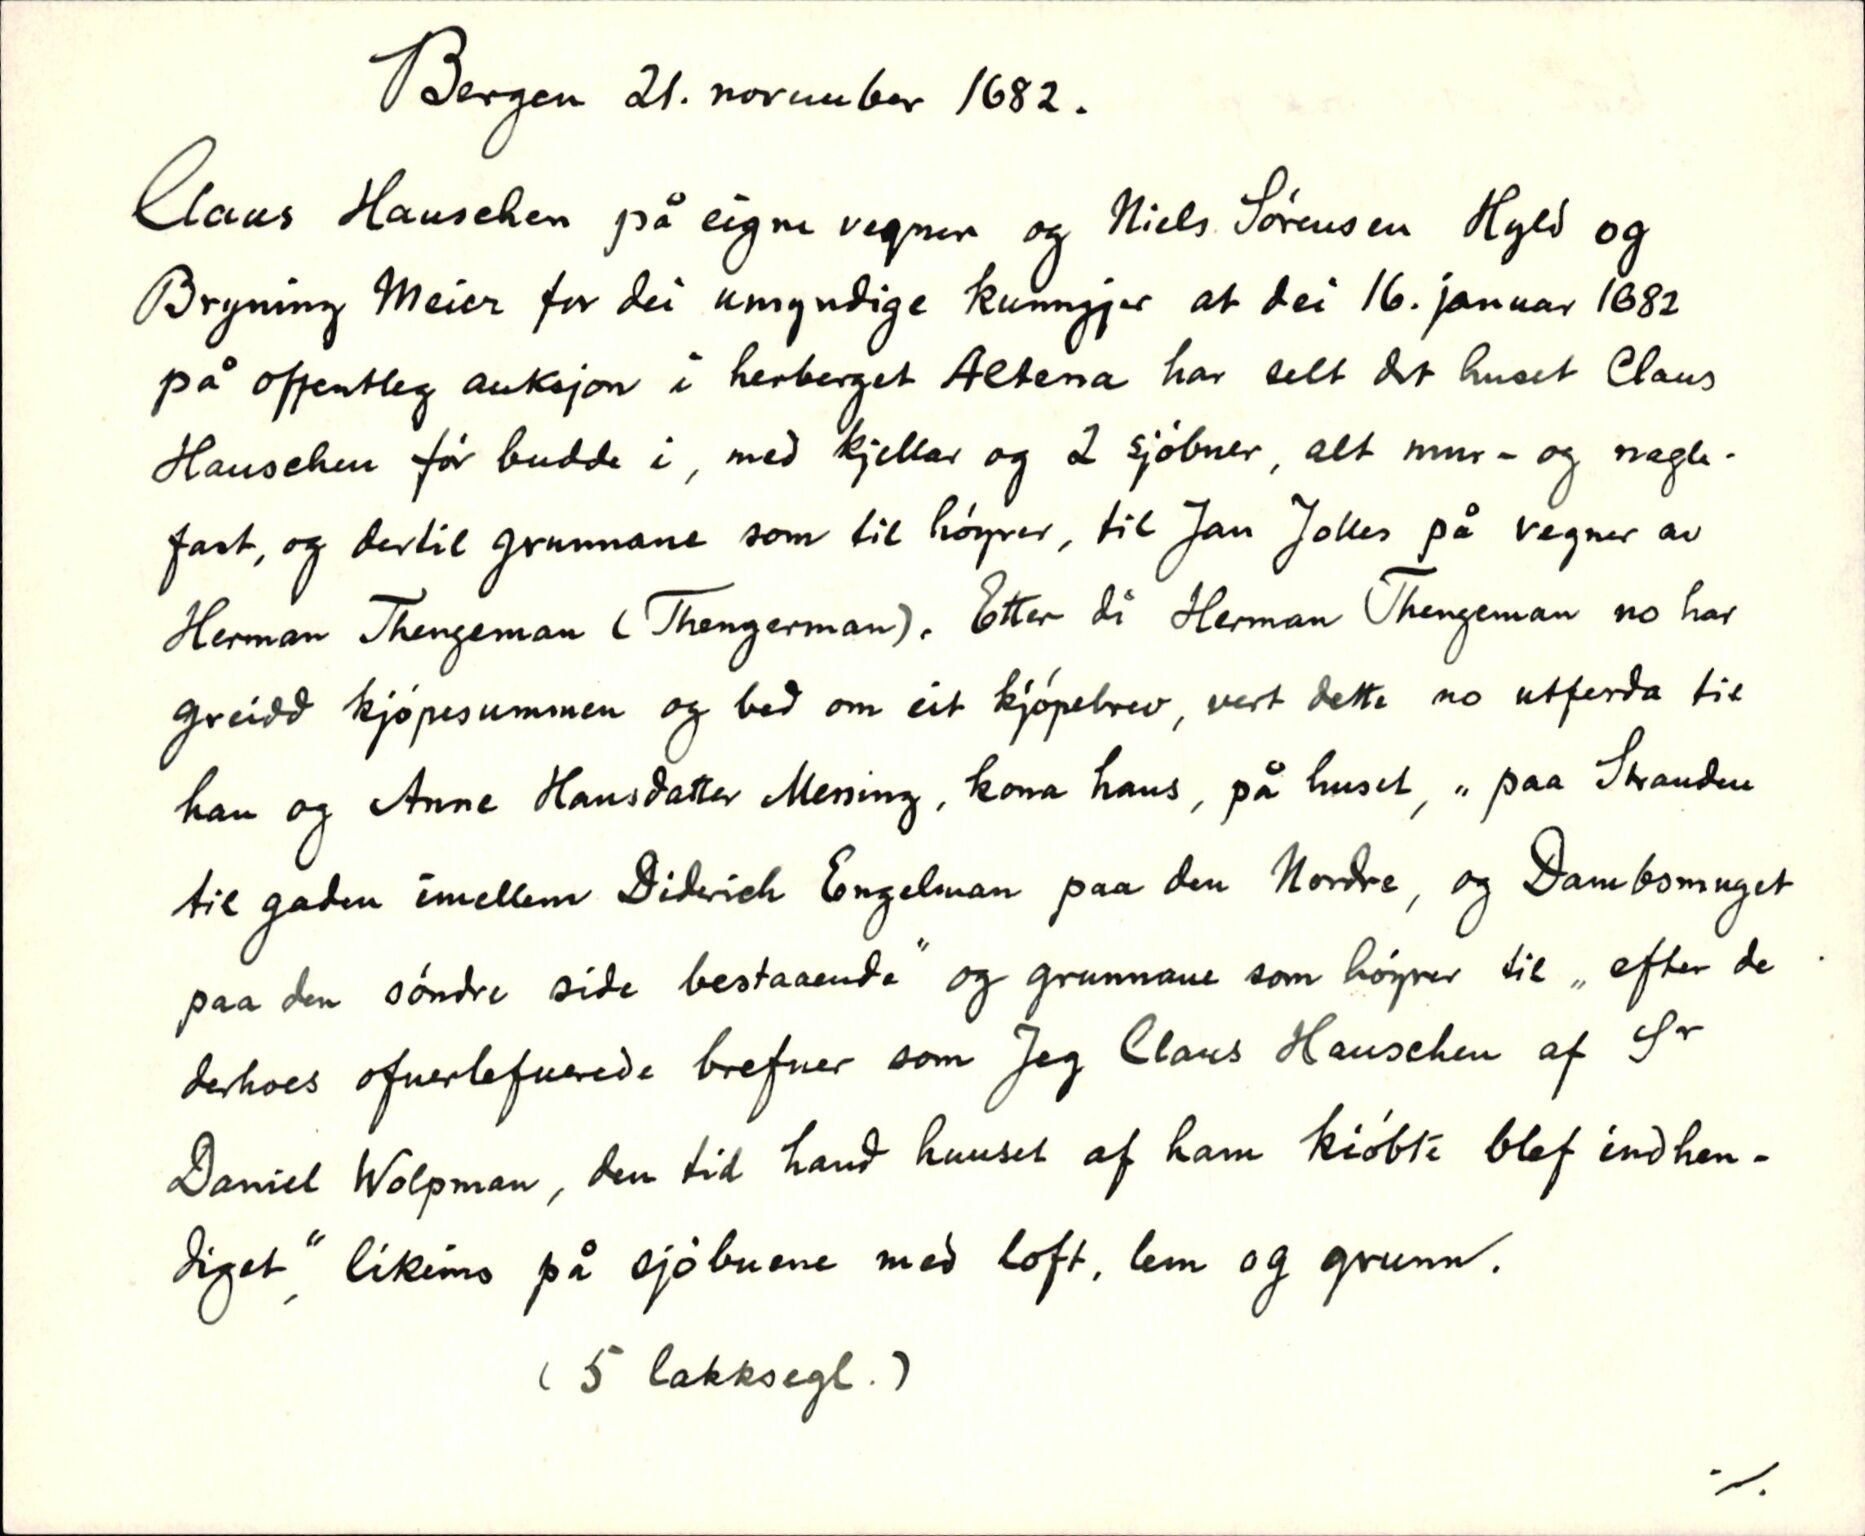 Bergen 21. november 1682.
Claus Hauschen på eigne vegner og Niels Sörensen Hyld og
Bryning Meier for dei umyndige kunngjer at dei 16. januar 1682
på offentleg auksjon i herberget Altena har selt det huset Claus
Hauschen för budde i, med kjellar og 2 sjöbuer, alt mur- og nagle-
fast, og dertil grunnane som til höyrer, til Jan Jolles på vegner av
Herman Thengeman (Thengerman). Etter di Herman Thengeman no har
greidd kjöpesummen og bed om eit kjöpebrev, vert dette no utferda til
han og Anne Hansdatter Messing, kona hans, på huset, „paa Stranden
til gaden imellem Diderich Engelman paa den Nordre, og Dambsmuget
paa den söndre side bestaaende" og grunnane som höyrer til „efter de
derhoes ofuerlefuerede brefuer som Jeg Claus Hauschen af Sr
Daniel Wolpman, den tid hand huuset af ham kiöbte blef indhen-
diget", likeins på sjöbuene med loft, lem og grunn.
(5 lakksegl.)
./.